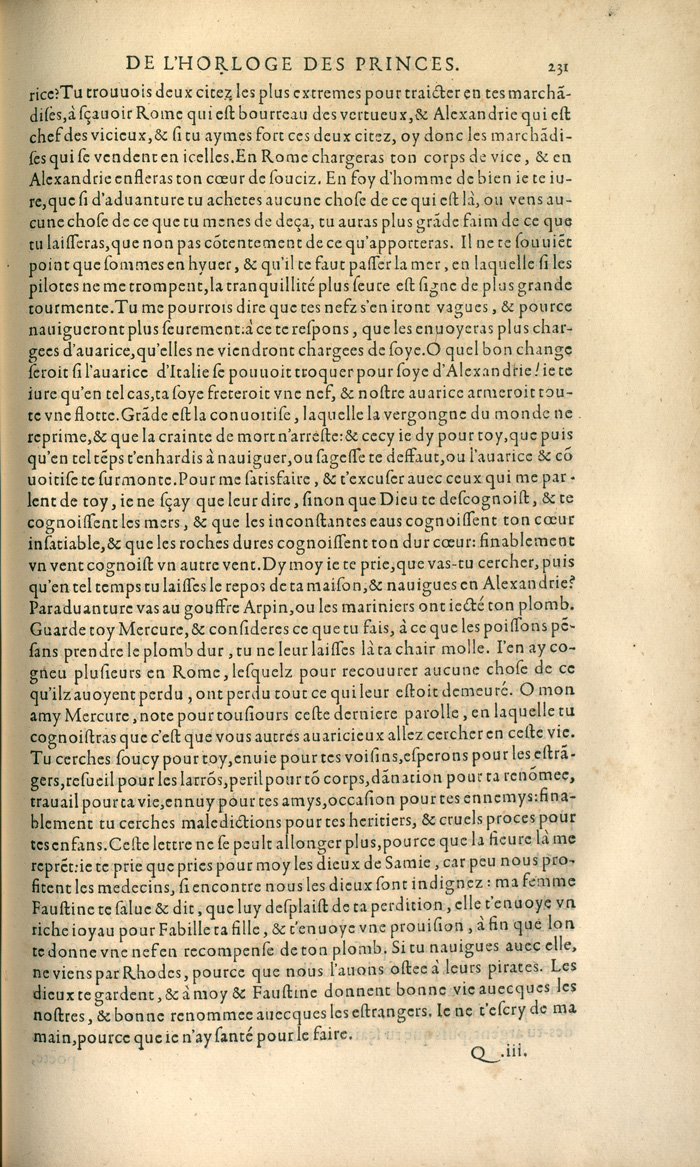 DE L'HORLOGE DES PRINCES. 231
rice?Tu trouuois deux citez les plus extremes pour traicter en tes marchã-
diſes,à ſçauoir Rome qui eſt bourreau des vertueux,& Alexandrie qui eſt
chef des vicieux,& ſi tu aymes fort ces deux citez, oy donc les marchãdi-
ſes qui ſe vendent en icelles.En Rome chargeras ton corps de vice, & en
Alexandrie enfleras ton cœur de ſouciz. En foy d'homme de bien ie te iu-
re,que ſi d'aduanture tu achetes aucune choſe de ce qui eſt là, ou vens au-
cune choſe de ce que tu menes de deça, tu auras plus grãde faim de ce que
tu laiſſeras,que non pas cõtentement de ce qu'apporteras. Il ne te ſouuiẽt
point que ſommes en hyuer, & qu'il te faut paſſer la mer, en laquelle ſi les
pilotes ne me trompent,la tranquillité plus ſeure eſt ſigne de plus grande
tourmente.Tu me pourrois dire que tes nefz s'en iront vagues, & pource
nauigueront plus ſeurement:à ce te reſpons, que les enuoyeras plus char-
gees d'auarice,qu'elles ne viendront chargees de ſoye.O quel bon change
ſeroit ſi l'auarice d'Italie ſe pouuoit troquer pour ſoye d'Alexandrie! ie te
iure qu'en tel cas,ta ſoye freteroit vne nef, & noſtre auarice armeroit tou-
te vne flotte.Grãde eſt la conuoitiſe, laquelle la vergongne du monde ne
reprime,& que la crainte de mort n'arreſte:& cecy ie dy pour toy,que puis
qu'en tel tẽps t'enhardis à nauiguer,ou ſageſſe te deffaut,ou l'auarice & cõ
uoitiſe te ſurmonte.Pour me ſatisfaire, & t'excuſer auec ceux qui me par-
lent de toy, ie ne ſçay que leur dire, ſinon que Dieu te deſcognoiſt, & te
cognoiſſent les mers, & que les inconſtantes eaus cognoiſſent ton cœur
inſatiable,& que les roches dures cognoiſſent ton dur cœur: finablement
vn vent cognoiſt vn autre vent.Dy moy ie te prie,que vas-tu cercher,puis
qu'en tel temps tu laiſſes le repos de ta maiſon,& nauigues en Alexandrie?
Paraduanture vas au gouffre Arpin,ou les mariniers ont iecté ton plomb.
Guarde toy Mercure,& conſideres ce que tu fais, à ce que les poiſſons pẽ-
ſans prendre le plomb dur, tu ne leur laiſſes là ta chair molle. I'en ay co-
gneu pluſieurs en Rome, leſquelz pour recouurer aucune choſe de ce
qu'ilz auoyent perdu, ont perdu tout ce qui leur eſtoit demeuré. O mon
amy Mercure, note pour touſiours ceſte derniere parolle, en laquelle tu
cognoiſtras que c'eſt que vous autres auaricieux allez cercher en ceſte vie.
Tu cerches ſoucy pour toy,enuie pour tes voiſins,eſperons pour les eſtrã-
gers,reſueil pour les larrõs,peril pour tõ corps,dãnation pour ta renõmee,
trauail pour ta vie,ennuy pour tes amys,occaſion pour tes ennemys:fina-
blement tu cerches maledictions pour tes heritiers, & cruels proces pour
tes enfans.Ceſte lettre ne ſe peult allonger plus,pource que la fieure là me
reprẽt:ie te prie que pries pour moy les dieux de Samie, car peu nous pro-
fitent les medecins, ſi encontre nous les dieux ſont indignez : ma femme
Fauſtine te ſalue & dit, que luy deſplaiſt de ta perdition, elle t'enuoye vn
riche ioyau pour Fabille ta fille, & t'enuoye vne prouiſion, à fin que lon
te donne vne nef en recompenſe de ton plomb. Si tu nauigues auec elle,
ne viens par Rhodes, pource que nous l'auons oſtee à leurs pirates. Les
dieux te gardent, & à moy & Fauſtine donnent bonne vie auecques les
noſtres, & bonne renommee auecques les eſtrangers. Ie ne t'eſcry de ma
main,pource que ie n'ay ſanté pour le faire.
Q.iii.